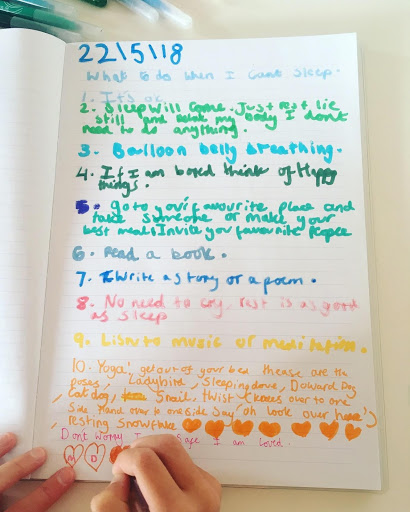 22/5/18
What to do when I cant sleep.
1. It's ok
2. Sleep will come. Just rest, lie
still and relax my body I dont
need to do anything.
3. Balloon belly breathing.
4. If I am bored think of Happy
things.
5. go to your favourite place and
take someone or make your
best meal. Invite you favourite People
6. Read a book.
7. Write a story or a poem.
8. No need to cry, rest is as good
as sleep
9. Lisn to music or meditation.
10. Yoga, get out of your bed thease are the
poses, Ladybird, Sleeping dove, Doward Dog
Cat dog, Snail, twist (knees over to one
side, Hand over to one side say 'oh look over here')
resting Snowflake
Dont worry I am safe I am loved.
D